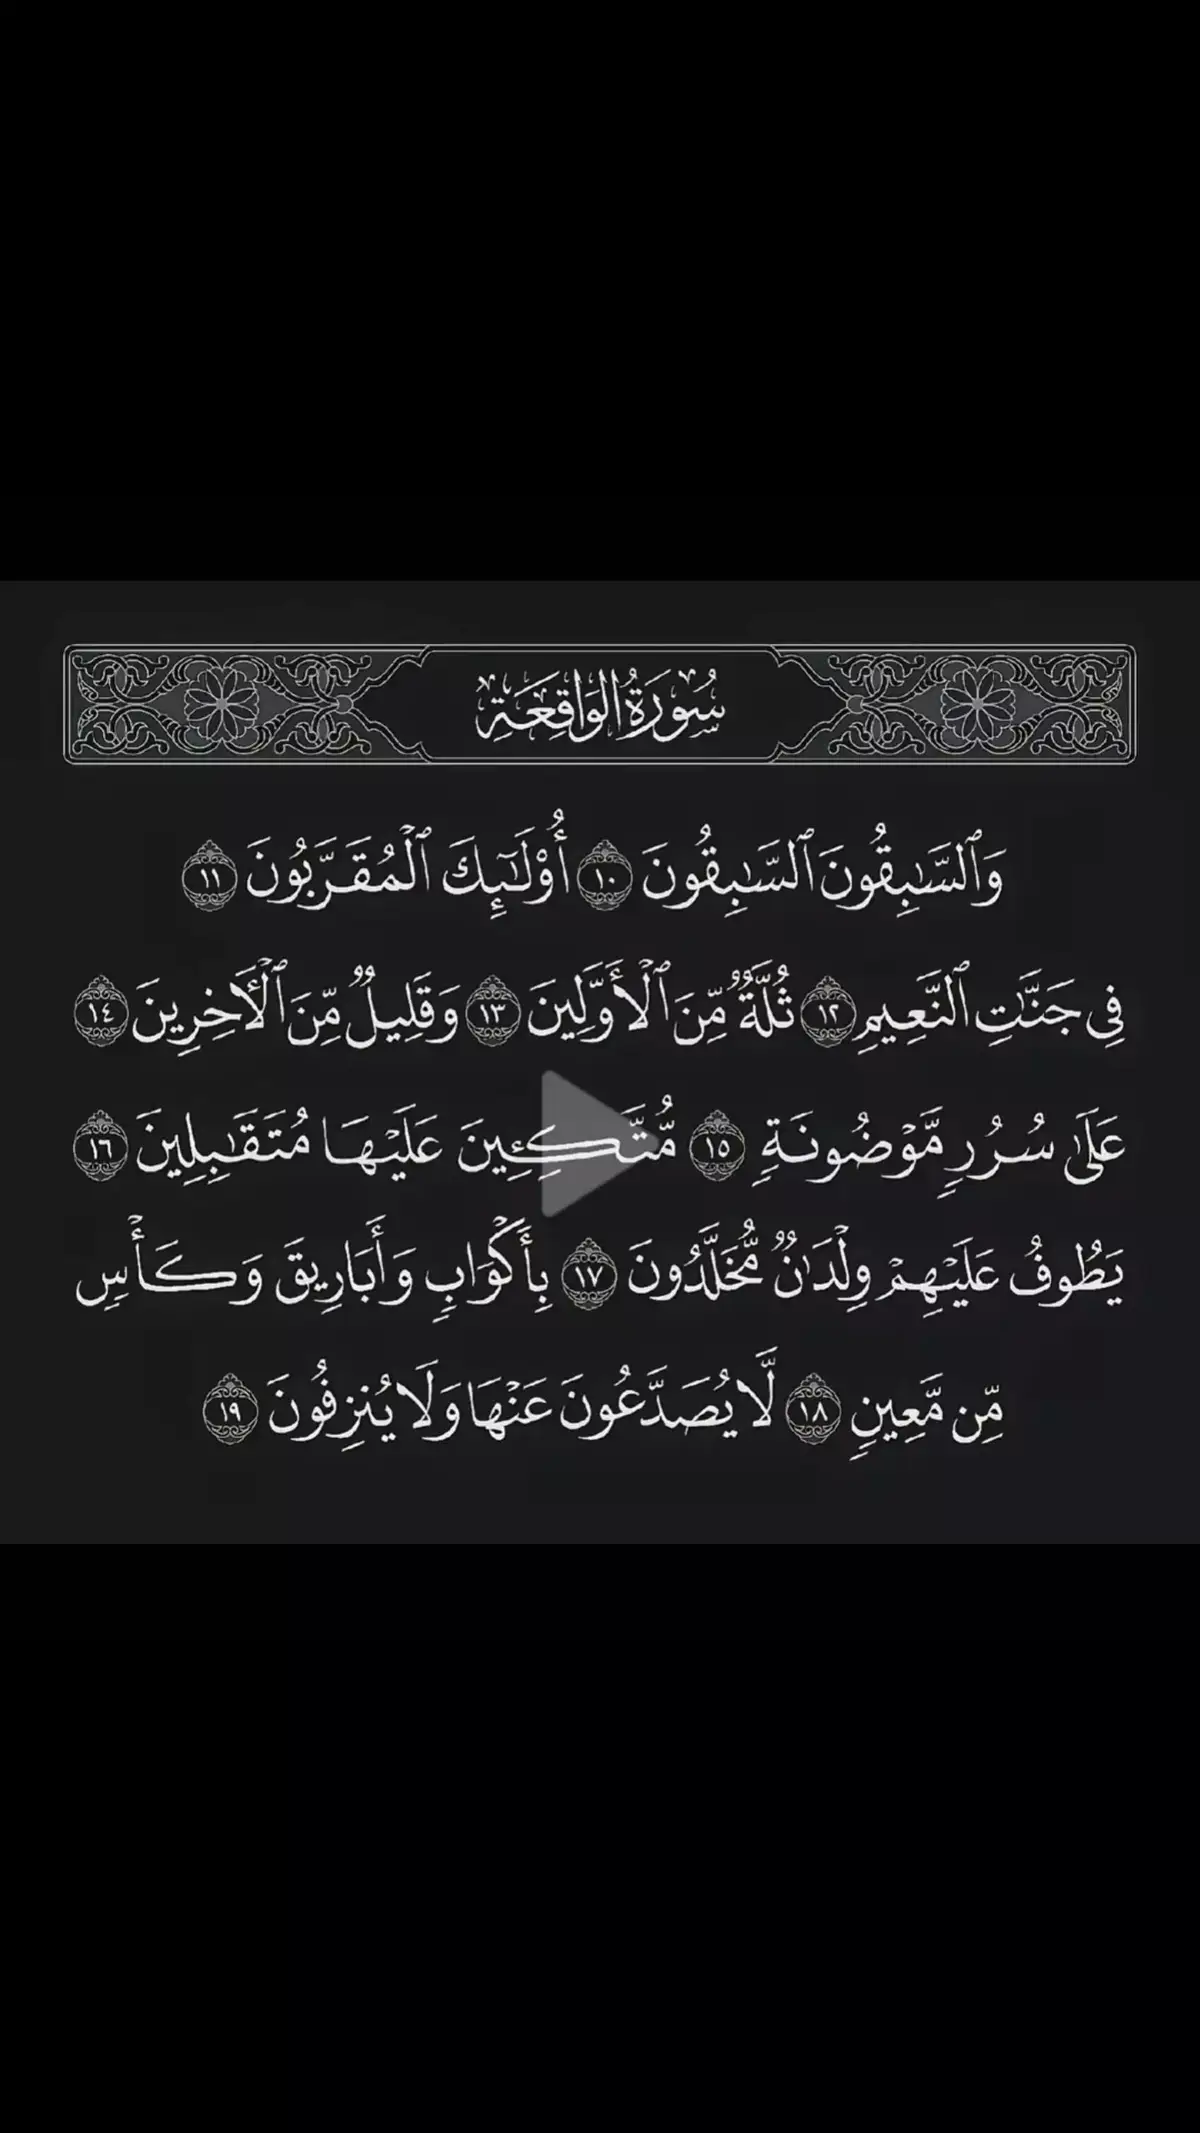 سُورَةُ الوَاقِعَةِ
وَٱلسَّٰبِقُونَ ٱلسَّٰبِقُونَ ١٠ أُو۟لَٰٓئِكَ ٱلْمُقَرَّبُونَ ١١
فِى جَنَّٰتِ ٱلنَّعِيمِ ١٢ ثُلَّةٌ مِّنَ ٱلْأَوَّلِينَ ١٣ وَقَلِيلٌ مِّنَ ٱلْءَاخِرِينَ ١٤
عَلَىٰ سُرُرٍ مَّوْضُونَةٍ ١٥ مُّتَّكِـِٔينَ عَلَيْهَا مُتَقَٰبِلِينَ ١٦
يَطُوفُ عَلَيْهِمْ وِلْدَٰنٌ مُّخَلَّدُونَ ١٧ بِأَكْوَابٍ وَأَبَارِيقَ وَكَأْسٍ
مِّن مَّعِينٍ ١٨ لَّا يُصَدَّعُونَ عَنْهَا وَلَا يُنزِفُونَ ١٩